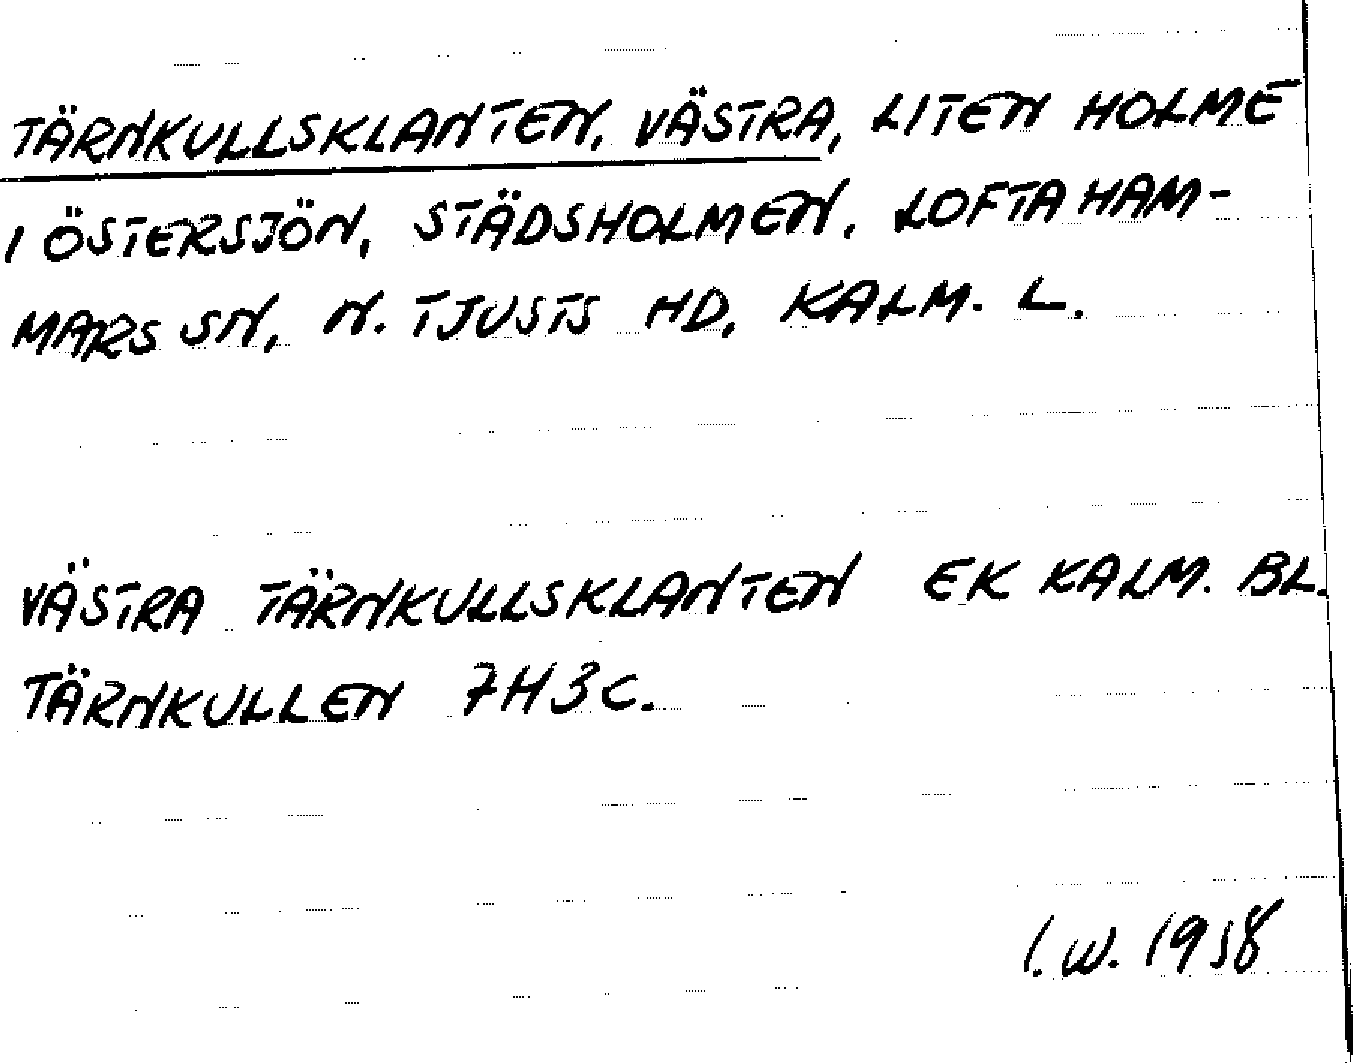 TÄRNKULLSKLANTEN, VÄSTRA, LITEN HOLME
I ÖSTERSJÖN, STÄDSHOLMEN, LOFTAHAM-
MARS SN, N. TJUSTS HD, KALM. L.
VÄSTRA TÄRNKULLSKLANTEN EK KALM. BL.
TÄRNKULLEN 7H3C.
I.W. 1958